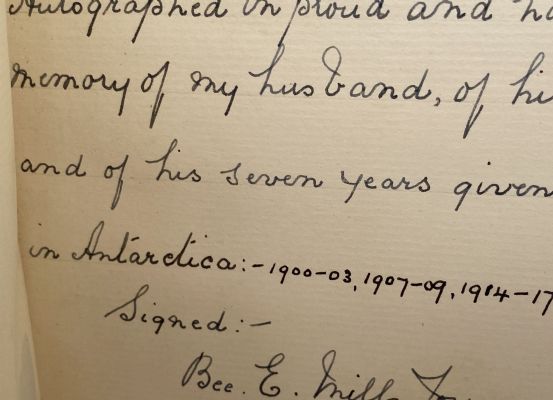 Autographed in proud and
memory of my husband, of
and of his seven years given
in Antarctica:- 1900-03, 1907-09, 1914-17
Signed:-
Bee. E. Mill